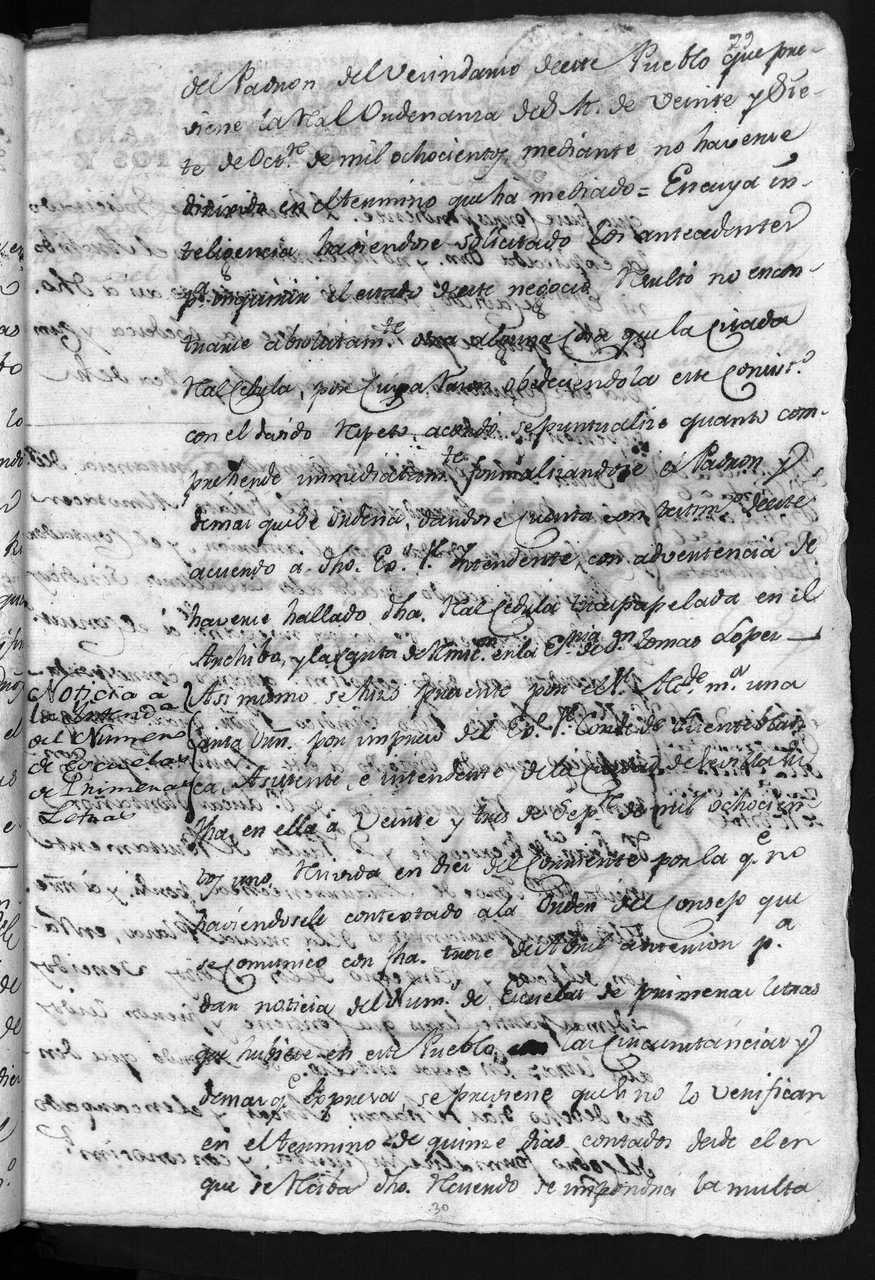 29
del Padron del Vecindario de este Pueblo que pre-
viene la Rl Ordenanza de S. M. de veinte y Sie-
te de Oct.re de mil ochocientos, mediante no haverse
en el termino que ha mediado = En cuya in-
teligencia haviendose solicitado los antecedentes
p.a inquirir el estado de este negocio, Resultó no encon-
trarse absolutam.te otra alguna cosa que la citada
Rl Cedula, por cuya razon obedeciendola este
con el devido Respeto, acordó se puntualize quanto com-
prehende immediatam.te formalizandose el Padron y
demas que se ordena, dandose cuenta con testim.o de este
acuerdo a dho. Ex.o S.r Intendente, con advertencia de
haverse hallado dha. Rl Cedula en el
Archibo, y la en la de D.n Tomas Lopez
Noticia a
la Intend.a
del Numero
de Escuelas
de Primeras
Letras
Asi mismo se hizo presente por el S.r Alc.de m.or una
Carta Orn. por impreso del Ex.o S.r Conde de Fuente blan-
ca, Asistente, e intendente de la Ciudad de Sevilla su
fha. en ella a Veinte y tres de Sep.re de mil ochocien-
tos uno, Recivida en diez del Corriente por la q.e no
haviendosele contextado a la Orden del Consejo que
se comunico con fha. trece de Abril anterior p.a
dar noticia del Num.o de Escuelas de primeras letras
que hubiese en este Pueblo, con las Circunstancias y
demas q.e Expresa se previene que si no lo verifican
en el termino de quinze dias contados desde el en
que se Reciba dho. Recuerdo se impondrá la multa
30